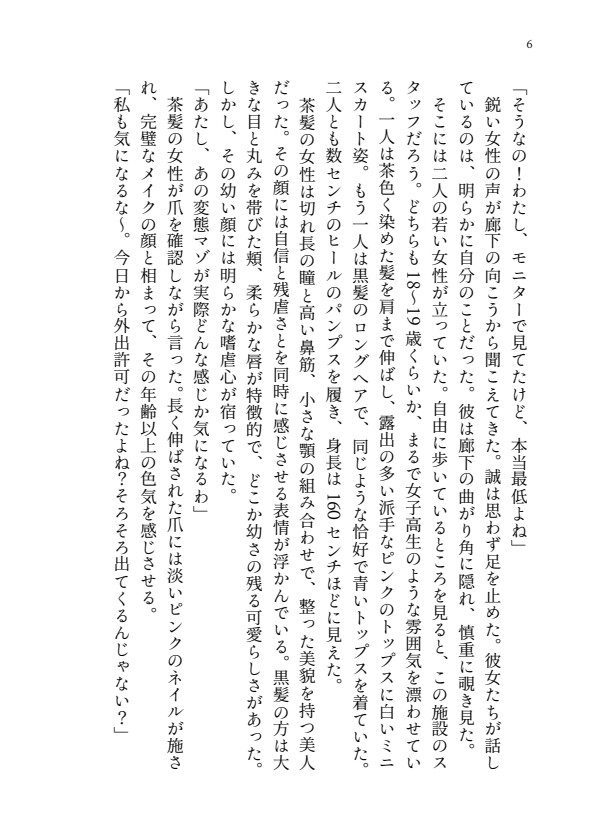 6
「そうなの！わたし、モニターで見てたけど、本当最低よね」
　鋭い女性の声が廊下の向こうから聞こえてきた。誠は思わず足を止めた。彼女たちが話し
ているのは、明らかに自分のことだった。彼は廊下の曲がり角に隠れ、慎重に覗き見た。
　そこには二人の若い女性が立っていた。自由に歩いているところを見ると、この施設のス
タッフだろう。どちらも18〜19歳くらいか、まるで女子高生のような雰囲気を漂わせてい
る。一人は茶色く染めた髪を肩まで伸ばし、露出の多い派手なピンクのトップスに白いミニ
スカート姿。もう一人は黒髪のロングヘアで、同じような恰好で青いトップスを着ていた。
二人とも数センチのヒールのパンプスを履き、身長は160センチほどに見えた。
　茶髪の女性は切れ長の瞳と高い鼻筋、小さな顎の組み合わせで、整った美貌を持つ美人
だった。その顔には自信と残虐さとを同時に感じさせる表情が浮かんでいる。黒髪の方は大
きな目と丸みを帯びた頬、柔らかな唇が特徴的で、どこか幼さの残る可愛らしさがあった。
しかし、その幼い顔には明らかな嗜虐心が宿っていた。
「あたし、あの変態マゾが実際どんな感じか気になるわ」
　茶髪の女性が爪を確認しながら言った。長く伸ばされた爪には淡いピンクのネイルが施さ
れ、完璧なメイクの顔と相まって、その年齢以上の色気を感じさせる。
「私も気になるな〜。今日から外出許可だったよね？そろそろ出てくるんじゃない？」